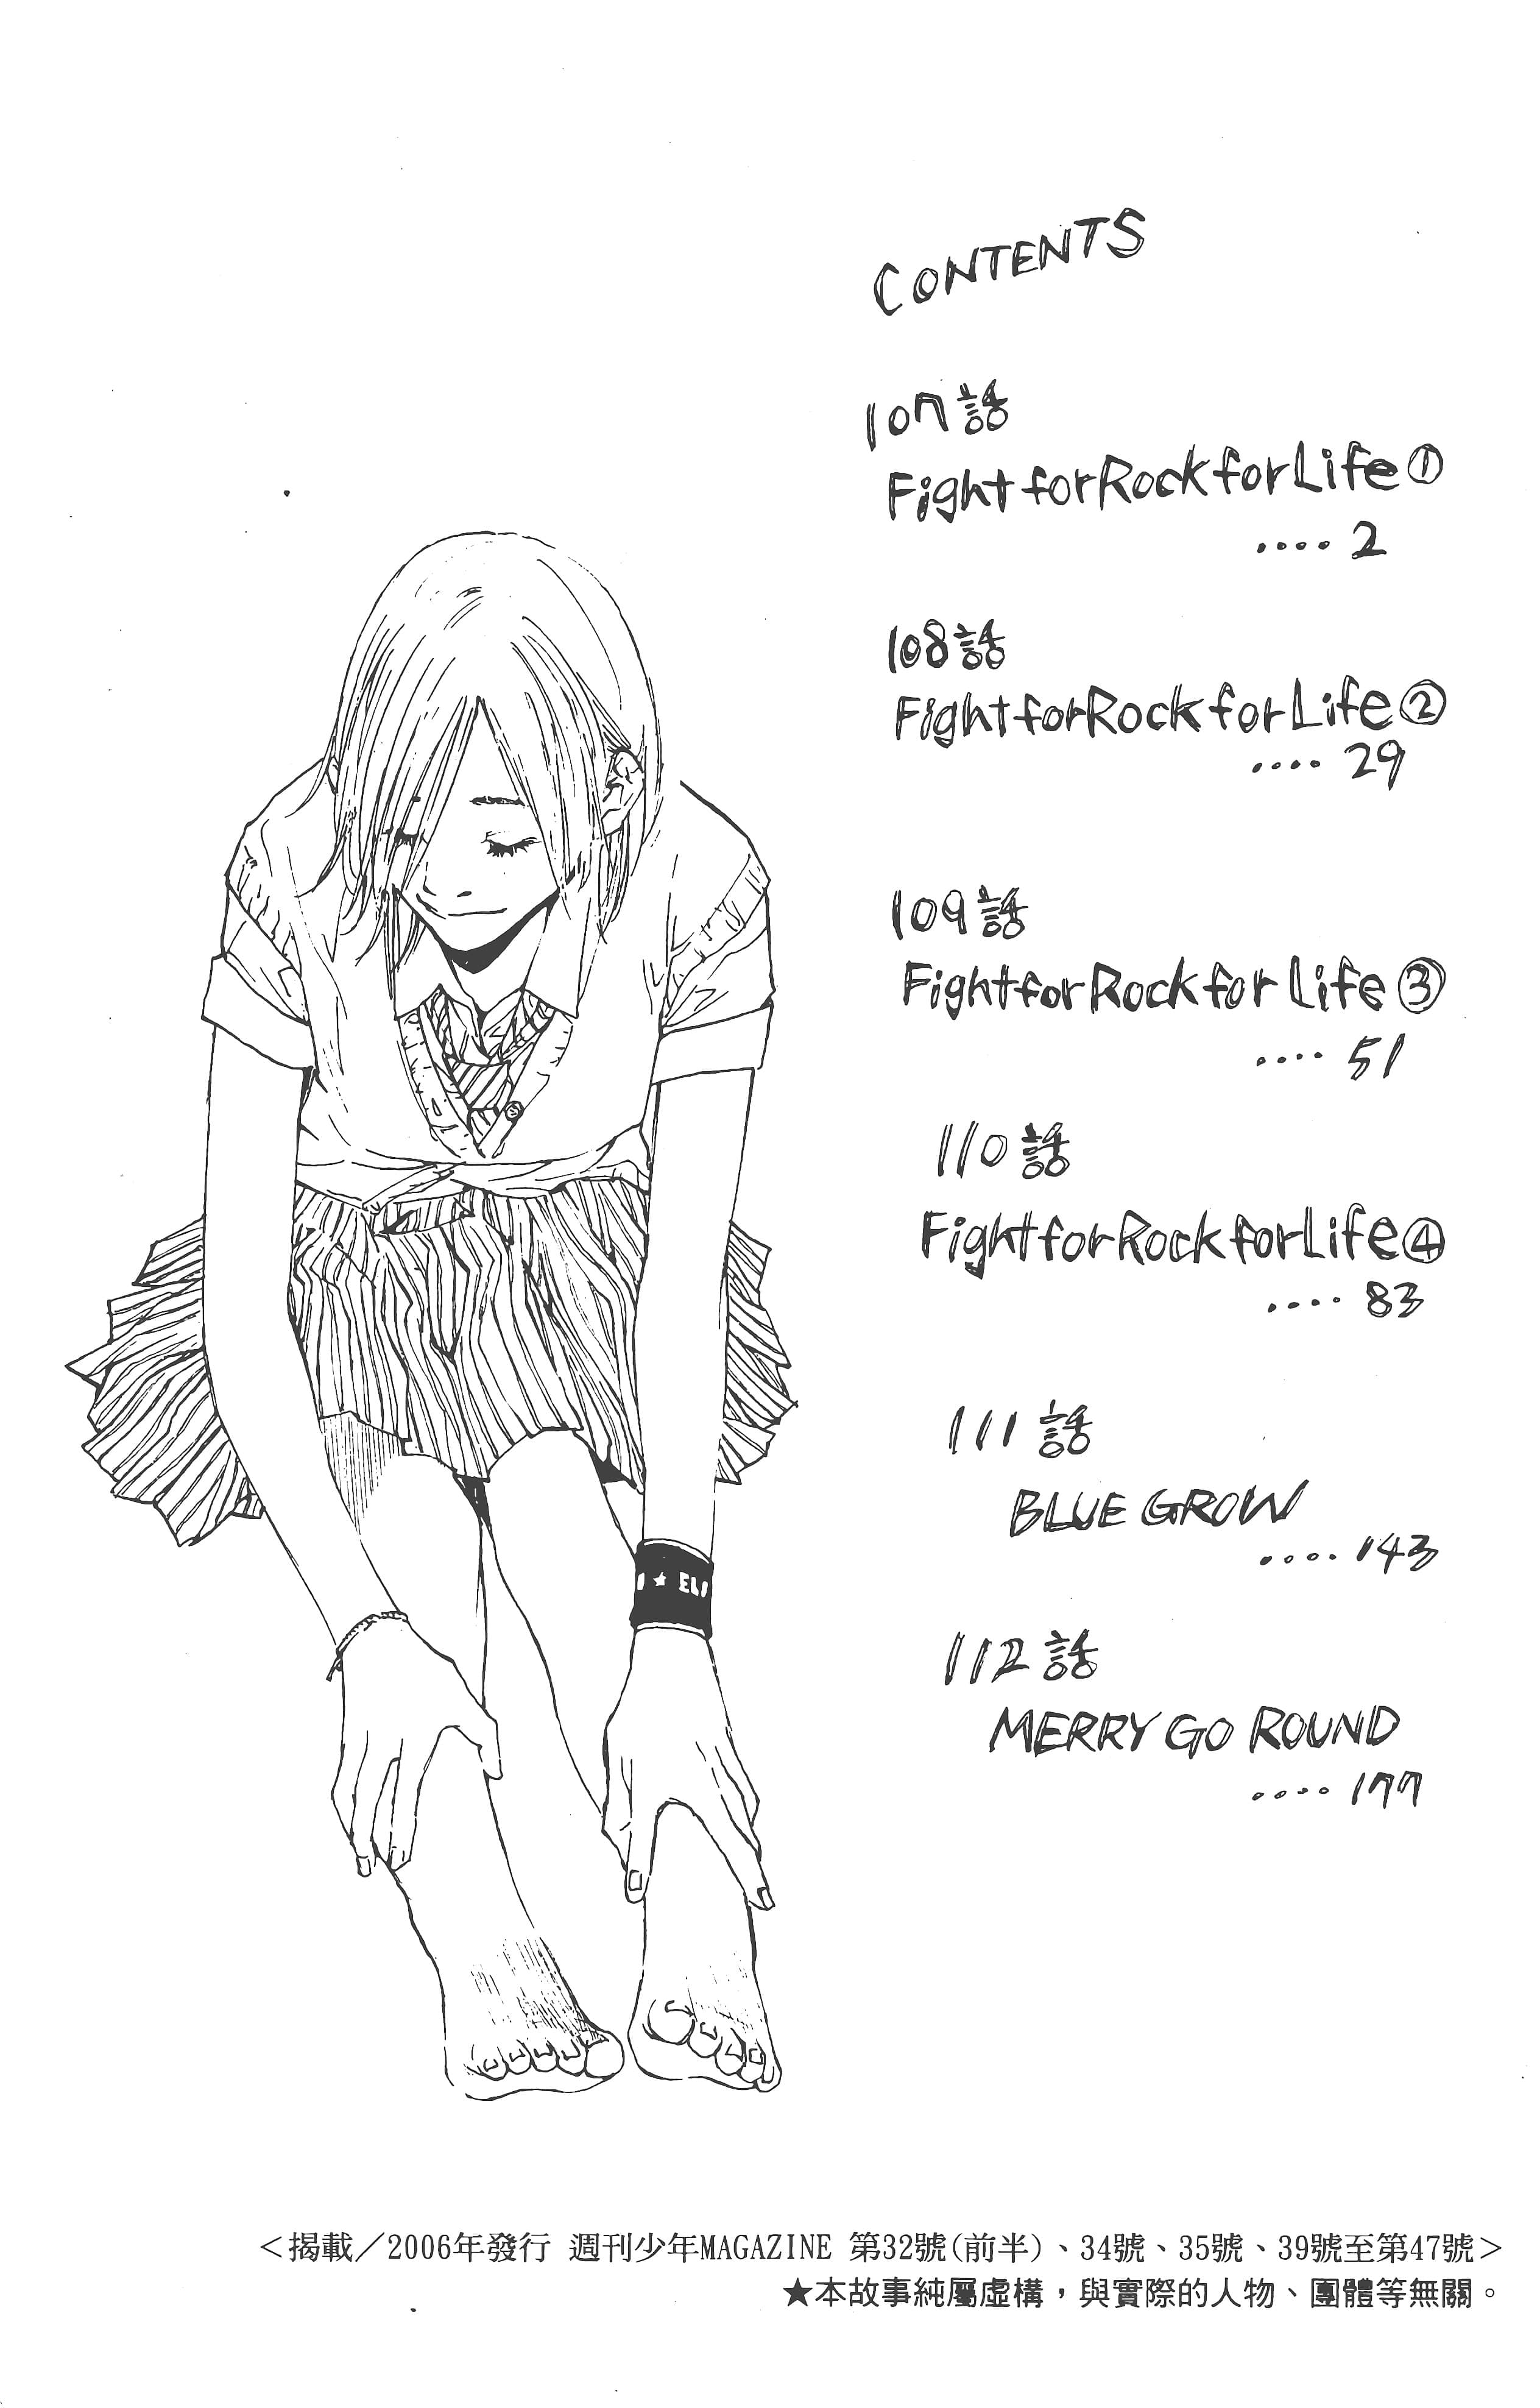 CONTENTS
107話
Fight for Rock for Life①
‥‥2
108話
Fight for Rock for Life②
‥‥29
109話
Fight for Rock for Life③
‥‥51
110話
Fight for Rock for Life④
‥‥83
111話
BLUE GROW
‥‥143
112話
MERRY GO ROUND
‥‥177
★ EL
＜揭載／2006年發行 週刊少年MAGAZINE 第32號(前半)、34號、35號、39號至第47號＞
★本故事純屬虛構，與實際的人物、團體等無關。